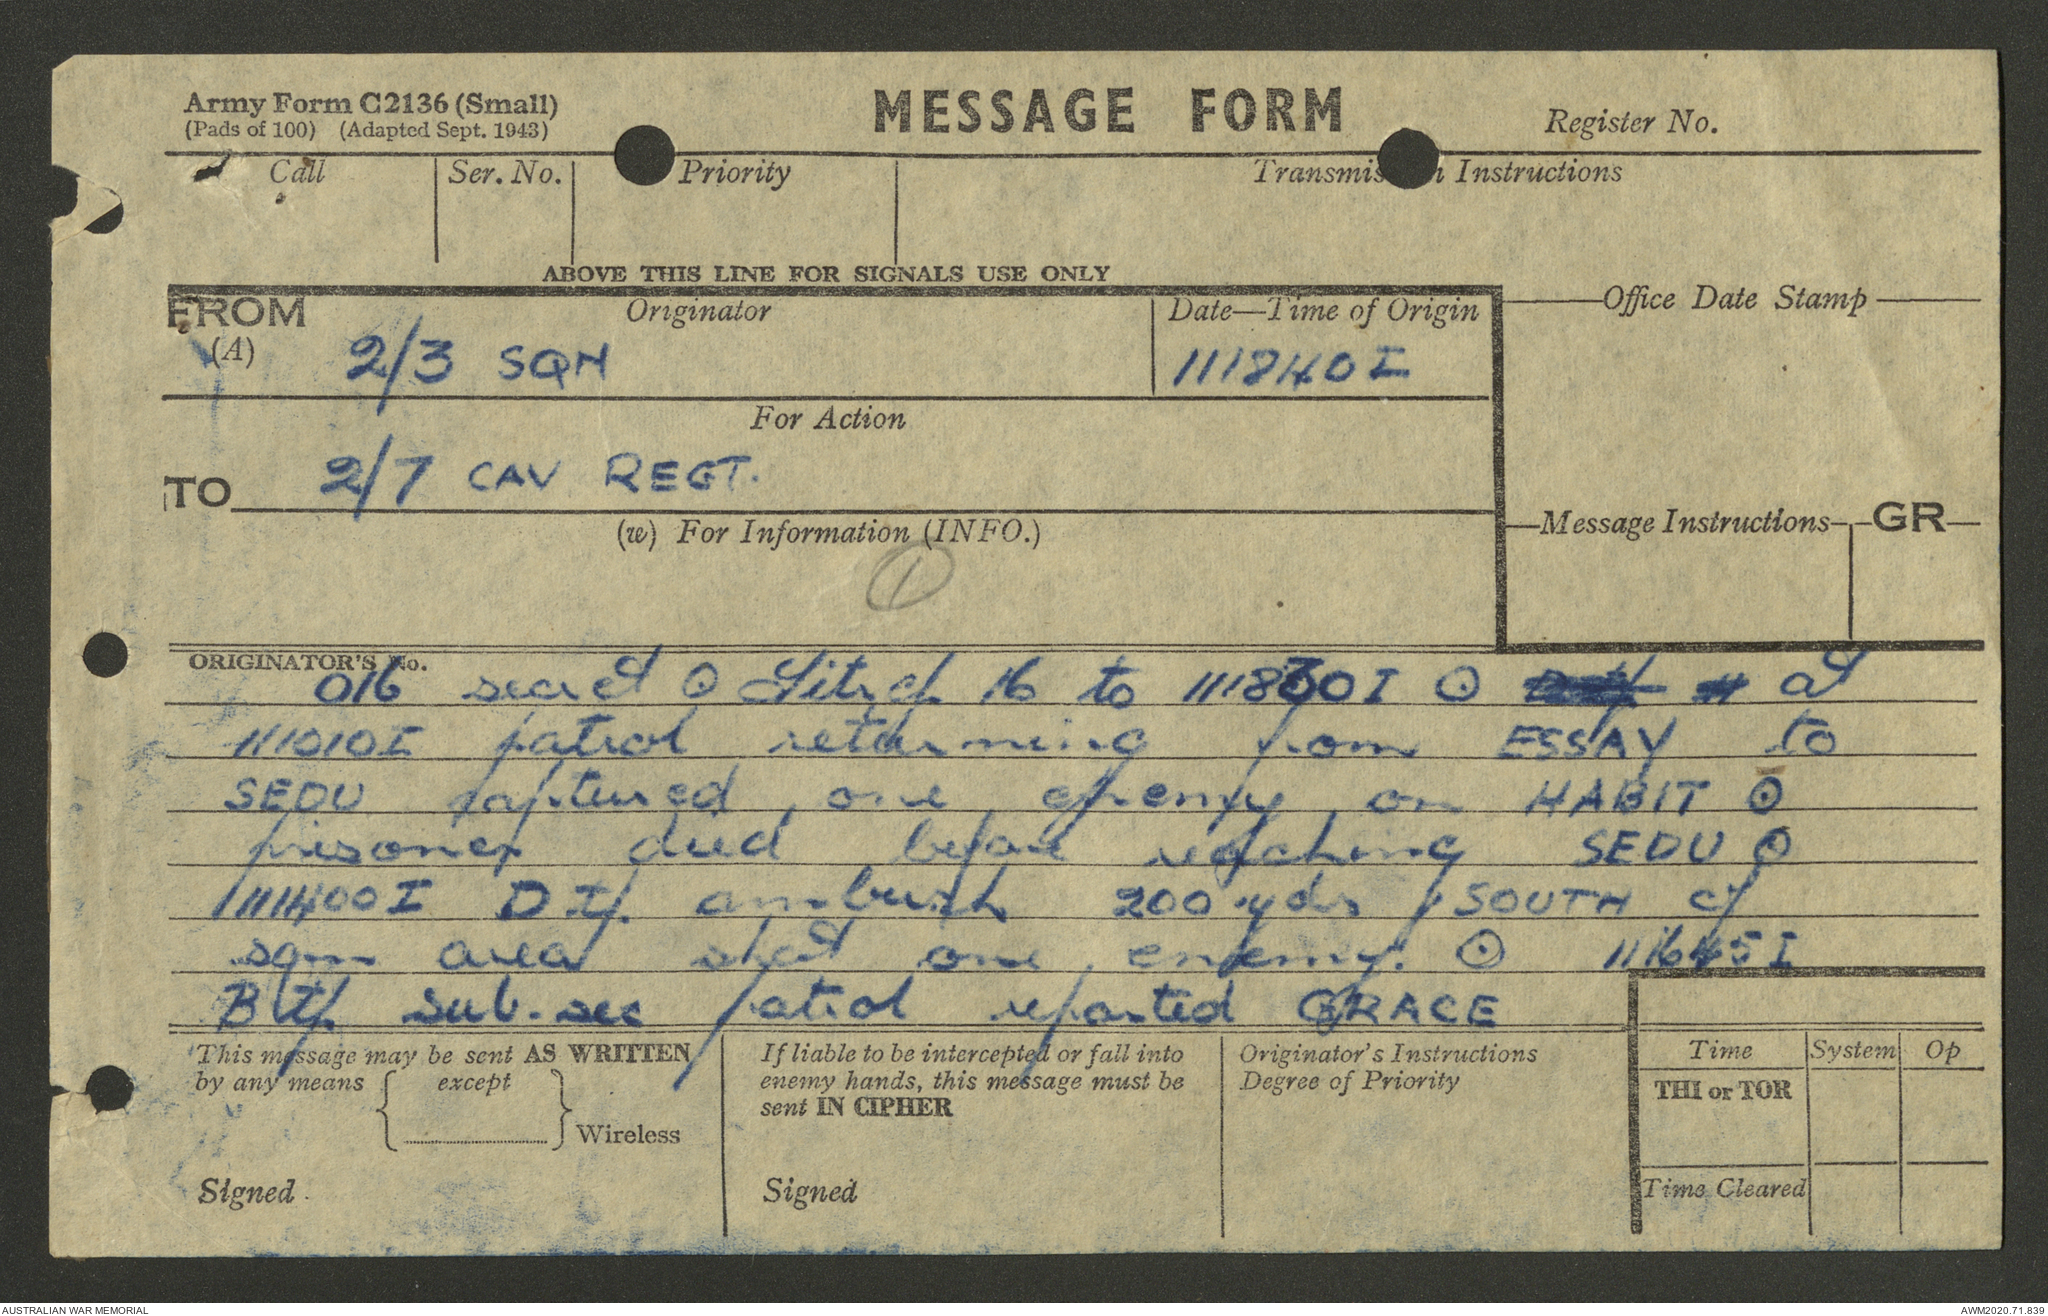 Army Form C2136 (Small)
(Pads of 100) (Adapted Sept. 1943)
MESSAGE FORM
Register No.
Call
Ser. No.
Priority
Transmis n Instructions
ABOVE THIS LINE FOR SIGNALS USE ONLY
FROM
(A)
Originator
2/3 SQN
Date—Time of Origin
111840I
Office Date Stamp
For Action
TO
2/7 CAV REGT.
(w) For Information (INFO.)
1
Message Instructions
GR
ORIGINATOR'S No.
016 secret ⊙ Sitrep 16 to 111830I ⊙ at
111010I patrol returning from ESSAY to
SEDU captured one enemy on HABIT ⊙
prisoner died before reaching SEDU ⊙
111400I D Tp. ambush 200 yds SOUTH of
sqn area shot one enemy. ⊙ 111645I
B Tp sub. sec patrol reported GRACE
This message may be sent AS WRITTEN
by any means { except
} Wireless
Signed
If liable to be intercepted or fall into
enemy hands, this message must be
sent IN CIPHER
Signed
Originator's Instructions
Degree of Priority
Time
System
Op
THI or TOR
Time Cleared
AUSTRALIAN WAR MEMORIAL
AWM2020.71.839